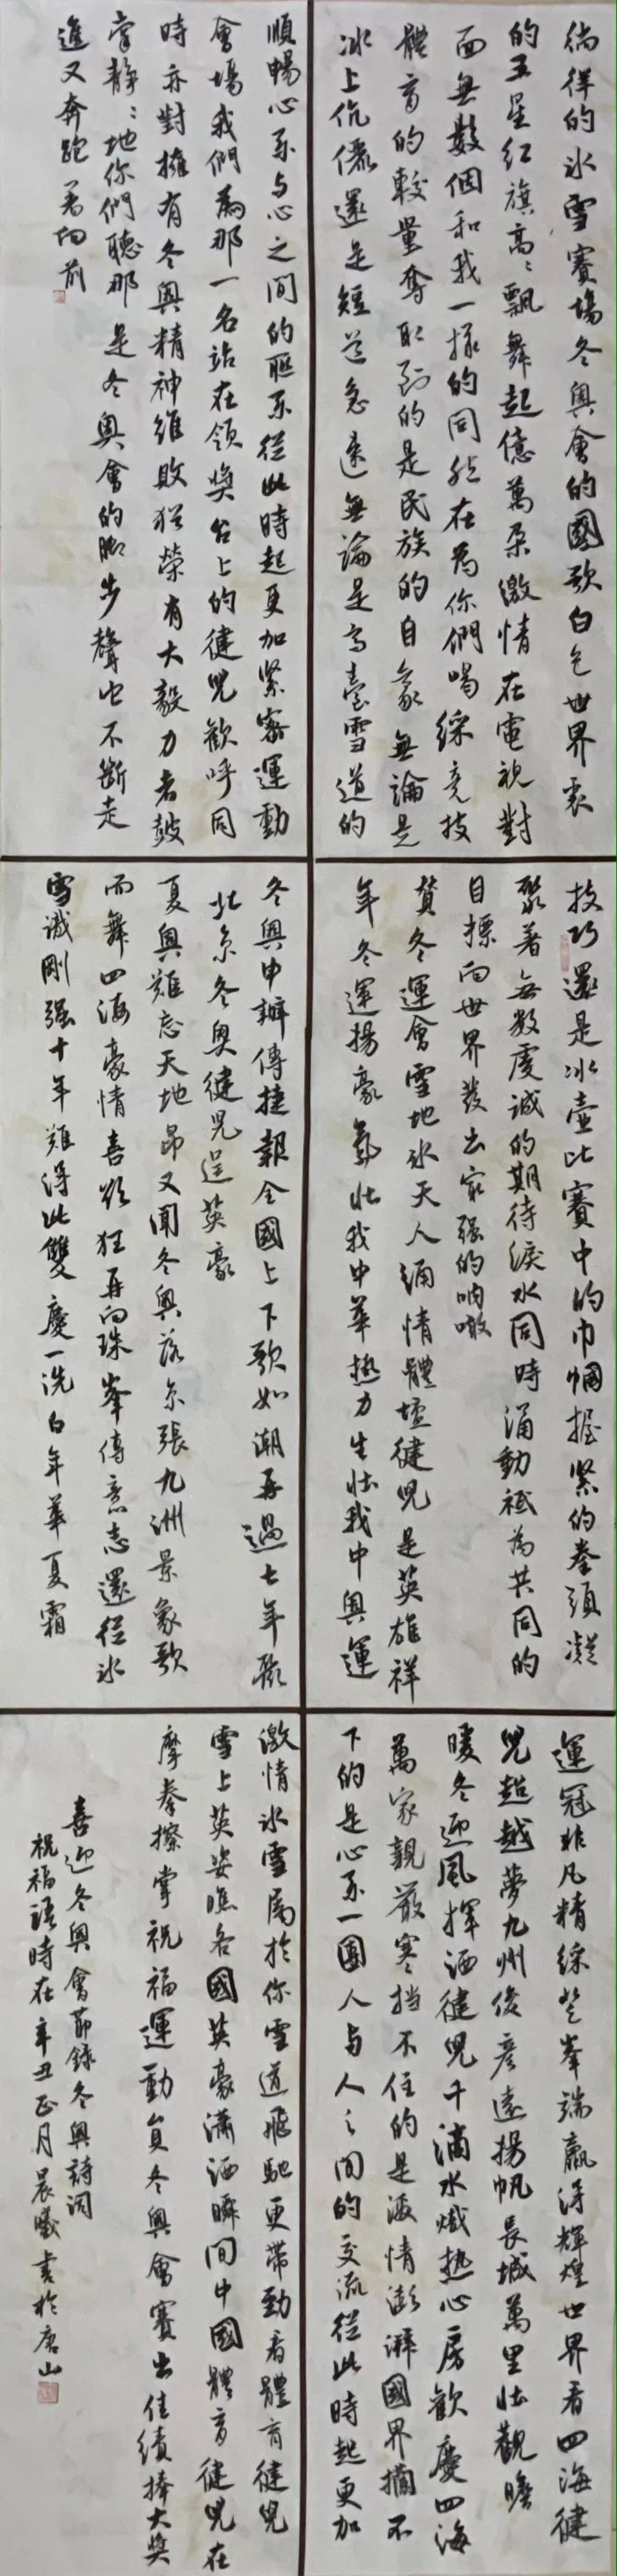 徜徉的冰雪賽場冬奧會的國歌白色世界裏
的五星红旗高高飄舞起億萬朵激情在電視對
面無數個和我一樣的同胞在為你們喝綵競技
體育的較量奪取到的是民族的自豪無論是
冰上伉儷還是短道急速無論是高臺雪道的
技巧還是冰壺比賽中的巾幗握緊的拳頭凝
聚著無数虔诚的期待淚水同時涌動祗為共同的
目標向世界發出最强的呐喊
賀冬運會雪地冰天人涌情體壇健兒是英雄祥
年冬運揚豪氣壮我中華热力生壮我中奥運
運冠非凡精綵登峯端贏得輝煌世界看四海健
兒超越夢九州俊彥遠揚帆長城萬里壮觀瞻
暖冬迎風揮洒健兒千滴水熾热心房歡慶四海
萬家親嚴寒挡不住的是激情澎湃國界攔不
下的是心系一團人与人之间的交流從此時起更加
順暢心系与心之间的联系從此時起更加緊密運動
會場我們為那一名站在領獎台上的健兒歡呼同
時亦對擁有冬奧精神雖敗猶榮有大毅力者鼓
掌静静地你們聽那是冬奧會的脚步聲它不断走
進又奔跑着向前
冬奧申辦傳捷報全國上下歌如潮再過七年聚
北京冬奥健兒逞英豪
夏奥難忘天地昂又聞冬奥落京張九洲景象歌
而舞四海豪情喜欲狂再向珠峯傳意志還從冰
雪诚剛强十年難得此雙慶一洗白年華夏霜
激情冰雪属於你雪道飛馳更帶勁看體育健兒
雪上英姿瞧各國英豪潇洒瞬间中國體育健兒在
摩拳擦掌祝福運動員冬奥會賽出佳績捧大獎
喜迎冬奥會節錄冬奥詩词
祝福語時在辛丑正月晨曦書於唐山